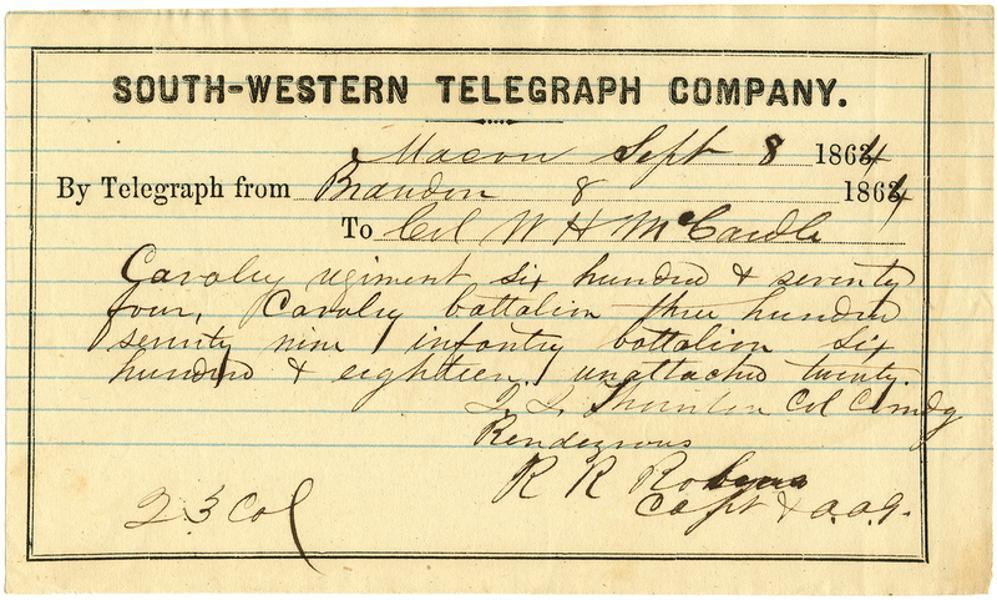 SOUTH-WESTERN TELEGRAPH COMPANY.
Macon Sept 8 1864
By Telegraph from Brandon 8 1864
To Col W H McCardle
Cavalry regiment six hundred & seventy
four, Cavalry battalion three hundred
seventy nine / infantry battalion six
hundred & eighteen / unattached twenty.
Col Comdg
Rendezvous
R R
Capt & a.a.g.
23 Col